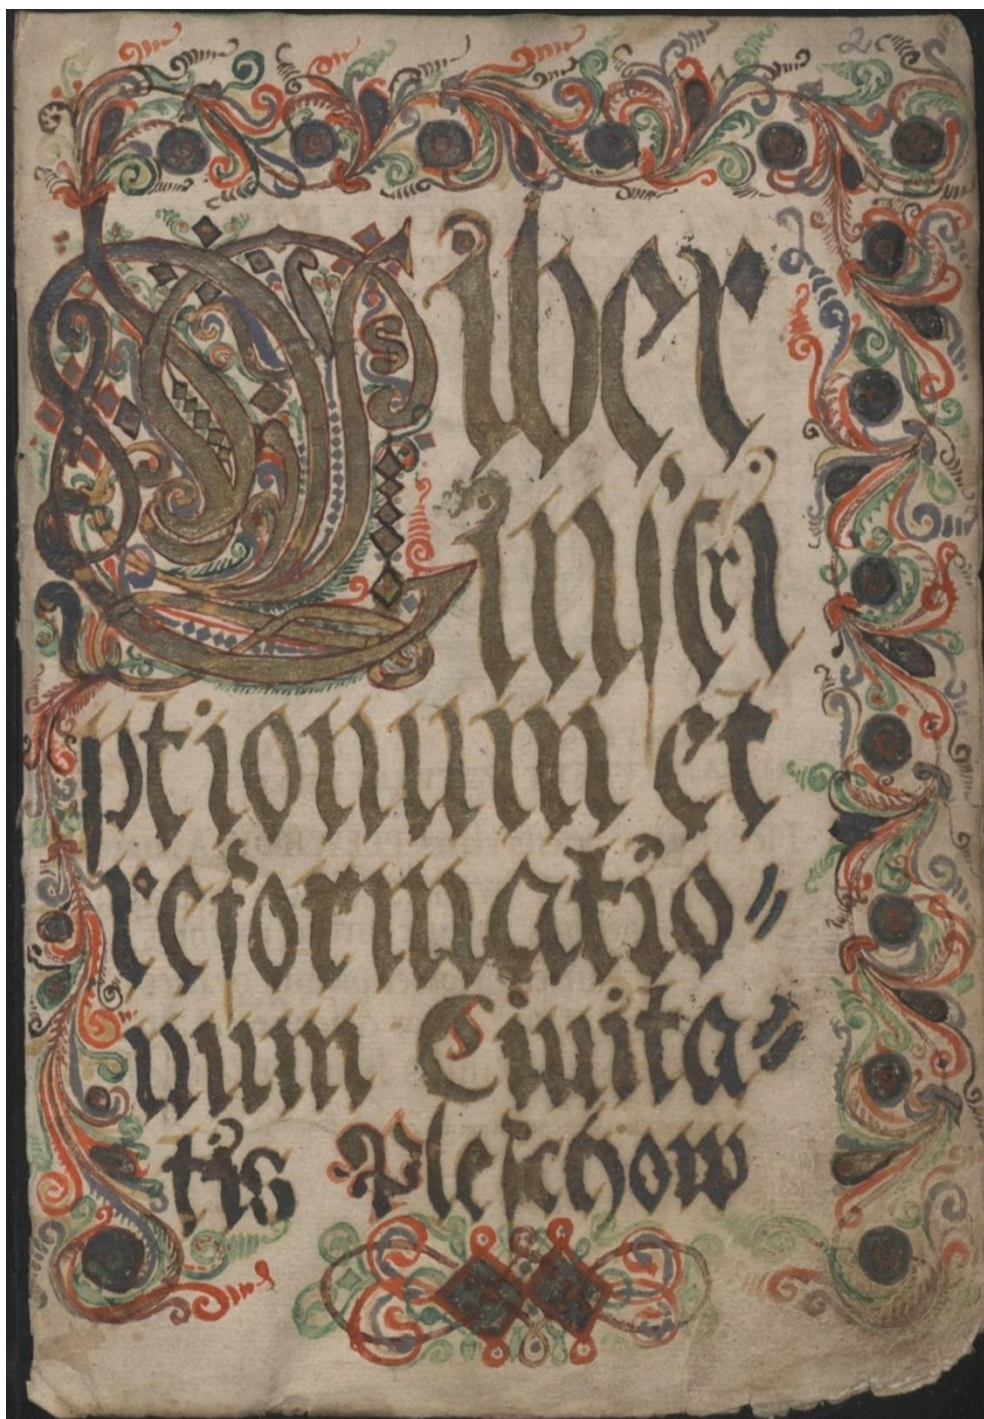 2
Liber
inscri
ptionum et
reformatio〃
num Ciuita〃
tis Pleschow